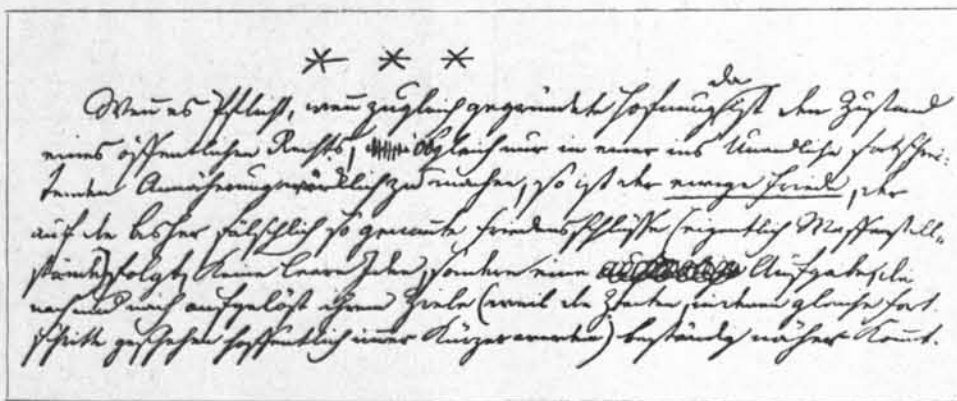 * * *
da
Wenn es Pflicht, wenn zugleich gegründete Hofnung ist den Zustand
eines öffentlichen Rechts, obgleich nur in einer ins Unendliche fortschrei-
tenden Annäherung wirklich zu machen, so ist der ewige Friede, der
auf die bisher fälschlich so genannte Friedensschlüsse (eigentlich Waffenstill-
stände) folgt, keine leere Idee, sondern eine Aufgabe, die
nach und nach aufgelöst ihrem Ziele (weil die Zeiten, in denen gleiche Fort-
schritte geschehen hoffentlich immer kürzer werden) beständig näher kommt.